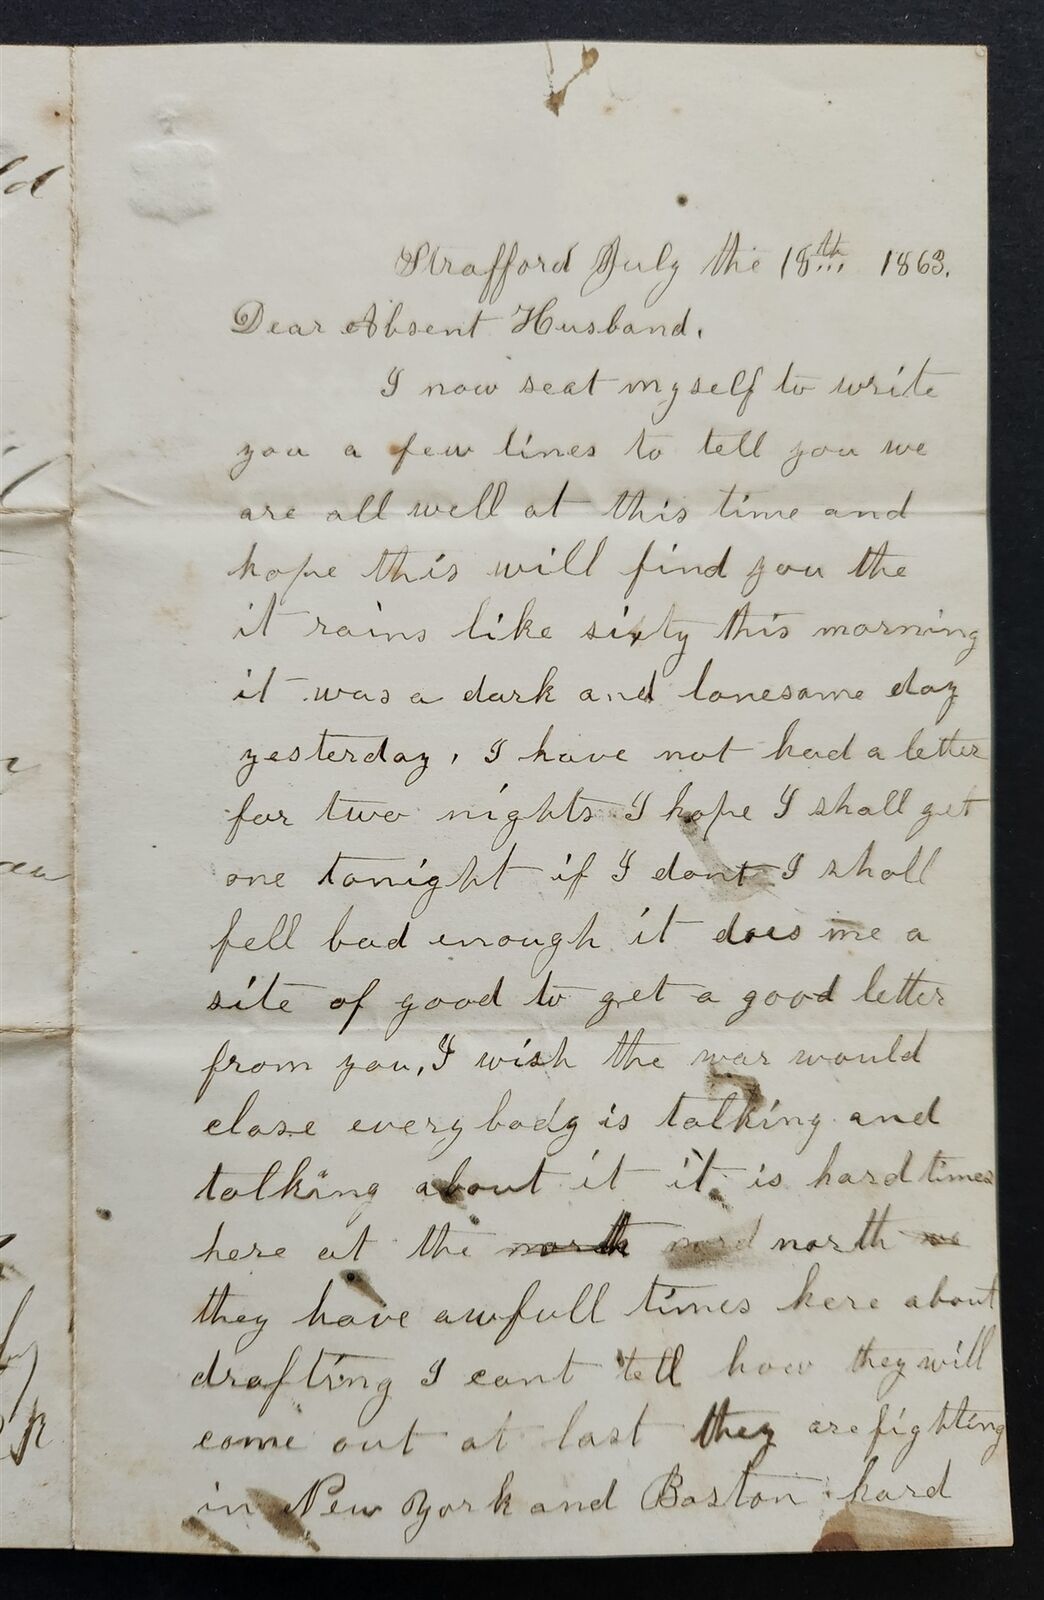 Strafford July the 18th 1863.
Dear Absent Husband.
I now seat myself to write
you a few lines to tell you we
are all well at this time and
hope this will find you the
it rains like sixty this morning
it was a dark and lonesome day
yesterday, I have not had a letter
for two nights I hope I shall get
one tonight if I dont I shall
fell bad enough it does me a
site of good to get a good letter
from you, I wish the war would
close every body is talking and
talking about it it is hard times
here at the north north we
they have awfull times here about
drafting I cant tell how they will
come out at last they are fighting
in New York and Boston hard